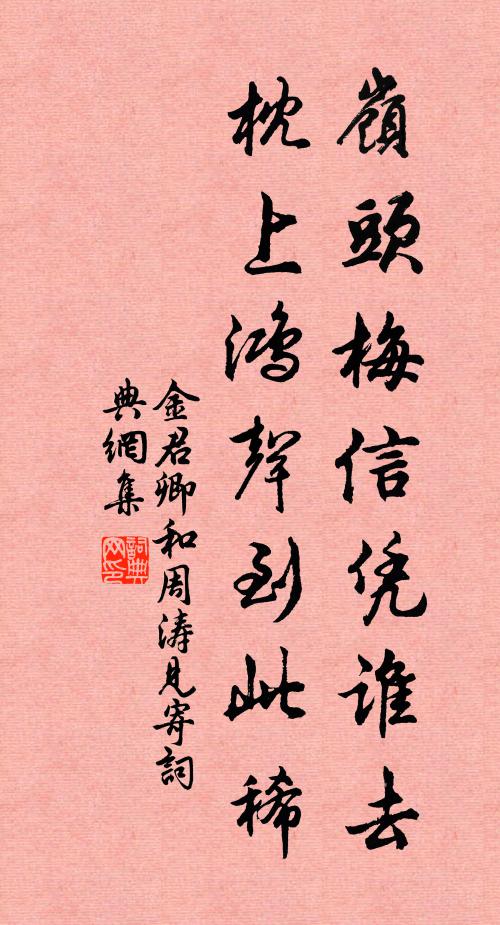 嶺頭梅信凭誰去
枕上鴻聲到此稀
金君卿和周濤見寄詞
典網集
詞典网印